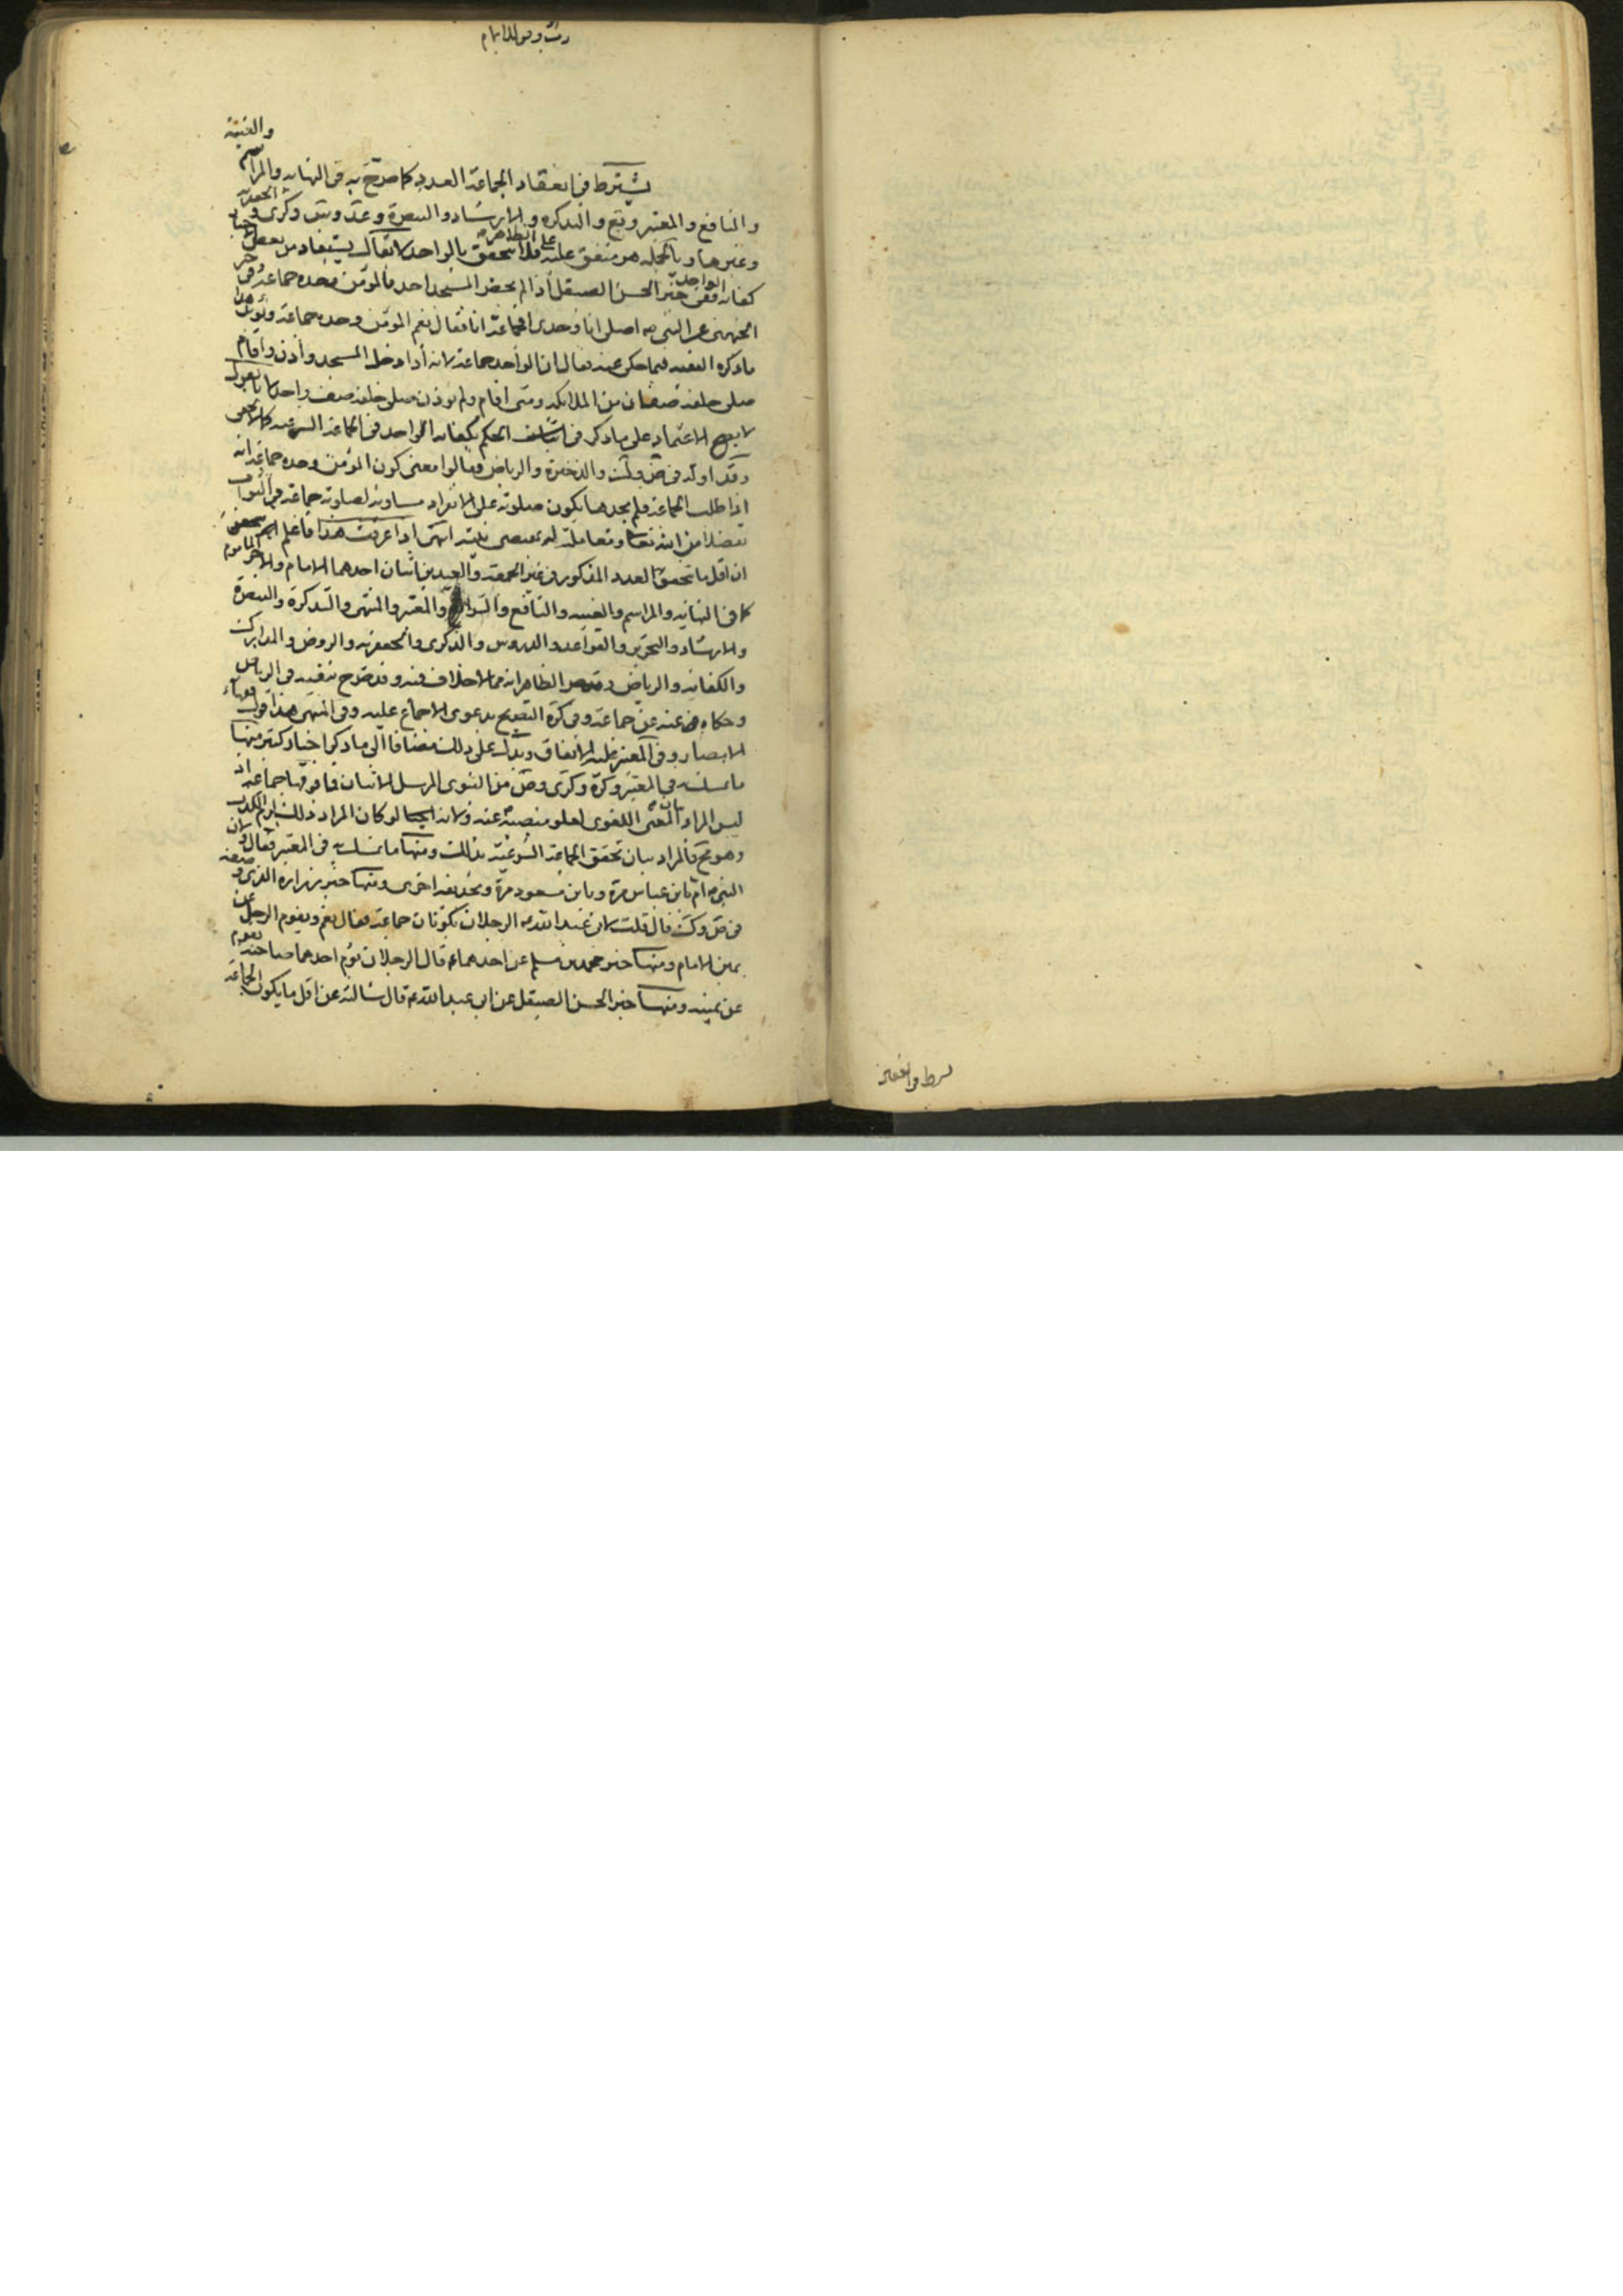 والغنية
يشترط في انعقاد الجماعة العدد كما صرّح به في النهايه والمراسم
والنافع والمعتبر ويع والتذكره والارشاد والتبصرة وعد وس وكرى والجعفريه
وغيرها وبالجمله هو متفق عليه على الظاهر فلا يتحقق بالواحد لا يقال يستفاد من بعض الاخبار
كفايه الواحد ففي خبر الحسن الصيقل اذا لم يحضر المسجد احد فالمؤمن وحده جماعة وفي خبر
الجهني عن النبي ص اصلى انا وحدى افجماعة انا فقال نعم المؤمن وحده جماعة ويؤيد هذا
ما ذكره الفقيه فيما حكى عنه فقال ان الواحد جماعة لانه اذا دخل المسجد واذن واقام
صلى خلفه صفان من الملائكه ومتى اقام ولم يؤذن صلى خلفه صف واحد لانا نقول
لا يصح الاعتماد على ما ذكر في اثبات الحكم بكفايه الواحد في الجماعة الشرعيه كما لا يخفى
وقد اوله في ض وك والذخيرة والرياض وقالوا معنى كون المؤمن وحده جماعة انه
اذا طلب الجماعة فلم يجدها يكون صلوته على الانفراد مساويه لصلوته جماعة في الثواب
تفضلا من الله تعالى ومعاملة له بمقتضى نيته انتهى اذا عرفت هذا فاعلم
ان اقل ما يتحقق العدد المذكور في غير الجمعة والعيدين اثنان احدهما الامام والاخر الماموم
كما في النهايه والمراسم والغنيه والنافع والشرايع والمعتبر والمنتهى والتذكرة والتبصرة
والارشاد والتحرير والقواعد والدروس والذكرى والجعفريه والروض والمدارك
والكفايه والرياض الظاهر انه مما لا خلاف فيه وقد صرح بنفيه في الرياض
وحكاه عنه عن جماعة وفي كرة التصريح بدعوى الاجماع عليه وفي المنتهى هذا قول فقهاء
الامصار وفي المعتبر عليه الاتفاق ويدل على ذلك مضافا الى ما ذكر اخبار كثير منها
ما تمسك به في المعتبر وكرة وكرى وض من النبوى المرسل الاثنان فما فوقها جماعة اذ
ليس المراد بيان المعنى اللغوى لعلو منصبه عنه ولانه لو كان المراد ذلك لزم الكذب
وهو مح فالمراد بيان تحقق الجماعة الشرعية بذلك ومنها ما تمسك به في المعتبر فقال ولان
النبي ص ام بابن عباس مرة وبابن مسعود مرة وبحذيفه اخرى ومنها خبر زراره الذى وصفه
في ض وك قال قلت لابى عبد الله ع الرجلان يكونان جماعة فقال نعم ويقوم الرجل عن
يمين الامام ومنها خبر محمد بن مسلم عن احدهما ع قال الرجلان يؤم احدهما صاحبه يقوم
عن يمينه ومنها خبر الحسن الصيقل عن ابى عبد الله ع قال سالته عن اقل ما يكون الجماعة